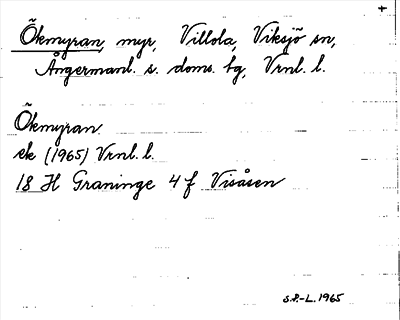 Ökmyran, myr, Villola, Viksjö sn,
Ångermanl. s. doms. tg, Vrnl. l.
Ökmyran
ek (1965) Vrnl. l.
18 H Graninge 4 f Visåsen
S.P.-L. 1965